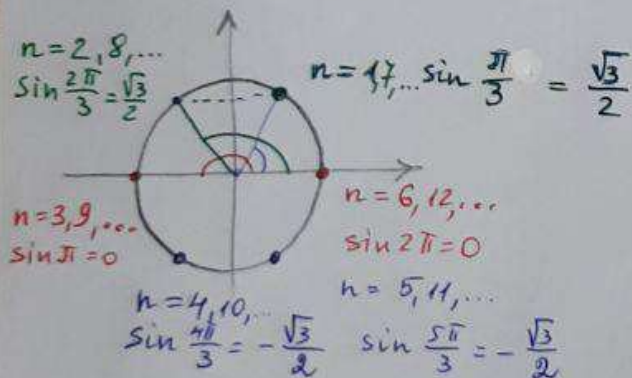 n = 2, 8, ...
sin 2π/3 = √3/2
n = 1, 7, ... sin π/3 = √3/2
n = 3, 9, ...
sin π = 0
n = 6, 12, ...
sin 2π = 0
n = 4, 10, ..
sin 4π/3 = - √3/2
n = 5, 11, ...
sin 5π/3 = - √3/2